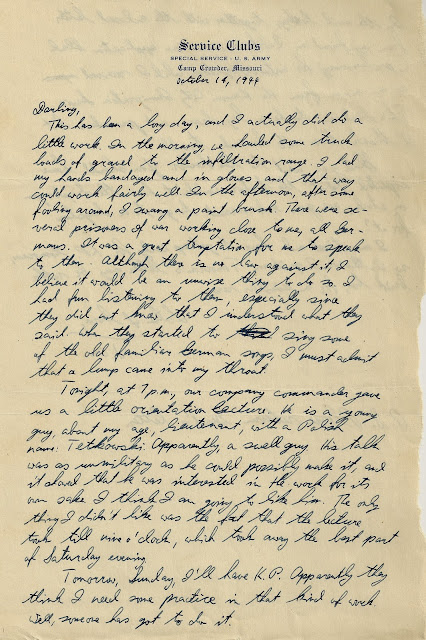 Service Clubs
SPECIAL SERVICE · U. S. ARMY
Camp Crowder, Missouri
October 14, 1944
Darling,
This has been a busy day, and I actually did do a
little work. In the morning, we hauled some truck
loads of gravel to the infiltration range. I had
my hands bandaged and in gloves and that way
could work fairly well. In the afternoon, after some
fooling around, I swung a paint brush. There were se-
veral prisoners of war working close to us, all Ger-
mans. It was a great temptation for me to speak
to them. Although there is no law against it, I
believe it would be an unwise thing to do so. I
had fun listening to them, especially since
they did not know that I understood what they
said. When they started to sing some
of the old familiar German songs, I must admit
that a lump came into my throat.
Tonight, at 7 p.m., our company commander gave
us a little orientation lecture. He is a young
guy, about my age, lieutenant, with a Polish
name: Tetkowski. Apparently, a swell guy. His talk
was as unmilitary as he could possibly make it, and
it showed that he was interested in the work for its
own sake. I think I am going to like him. The only
thing I didn't like was the fact that the lecture
took till nine o'clock, which took away the best part
of Saturday evening.
Tomorrow, Sunday, I'll have K.P. Apparently they
think I need some practice in that kind of work.
Well, someone has got to do it.